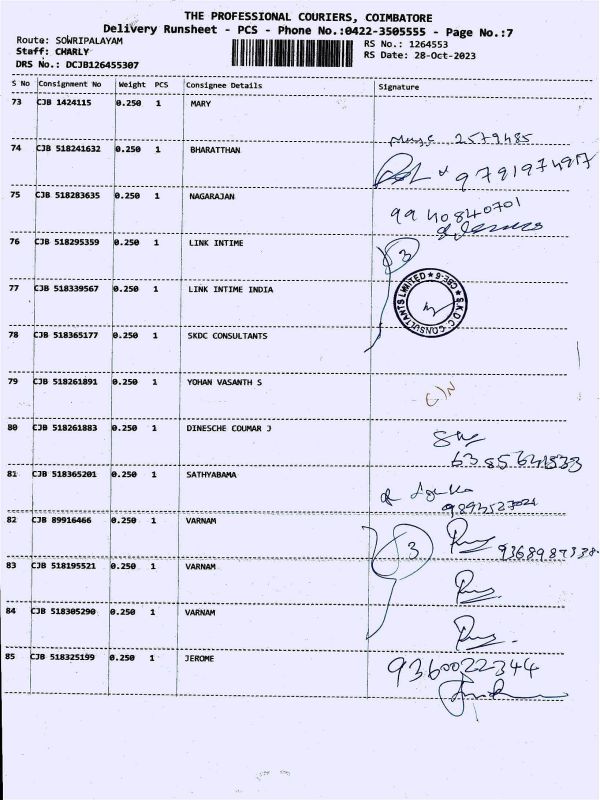 THE PROFESSIONAL COURIERS, COIMBATORE
Delivery Runsheet - PCS - Phone No.:0422-3505555 - Page No.:7
Route: SOWRIPALAYAM
RS No.: 1264553
Staff: CHARLY
RS Date: 28-Oct-2023
DRS No.: DCJB126455307
S No Consignment No Weight PCS Consignee Details Signature
73 CJB 1424115 0.250 1 MARY
2579485
74 CJB 518241632 0.250 1 BHARATTHAN
9791974917
75 CJB 518283635 0.250 1 NAGARAJAN
9940840701
76 CJB 518295359 0.250 1 LINK INTIME
3
77 CJB 518339567 0.250 1 LINK INTIME INDIA
S.K.D.C. CONSULTANTS LIMITED ★ CBE-6 ★
78 CJB 518365177 0.250 1 SKDC CONSULTANTS
79 CJB 518261891 0.250 1 YOHAN VASANTH S
80 CJB 518261883 0.250 1 DINESCHE COUMAR J
81 CJB 518365201 0.250 1 SATHYABAMA
82 CJB 89916466 0.250 1 VARNAM
3
83 CJB 518195521 0.250 1 VARNAM
84 CJB 518305290 0.250 1 VARNAM
85 CJB 518325199 0.250 1 JEROME
9360022344